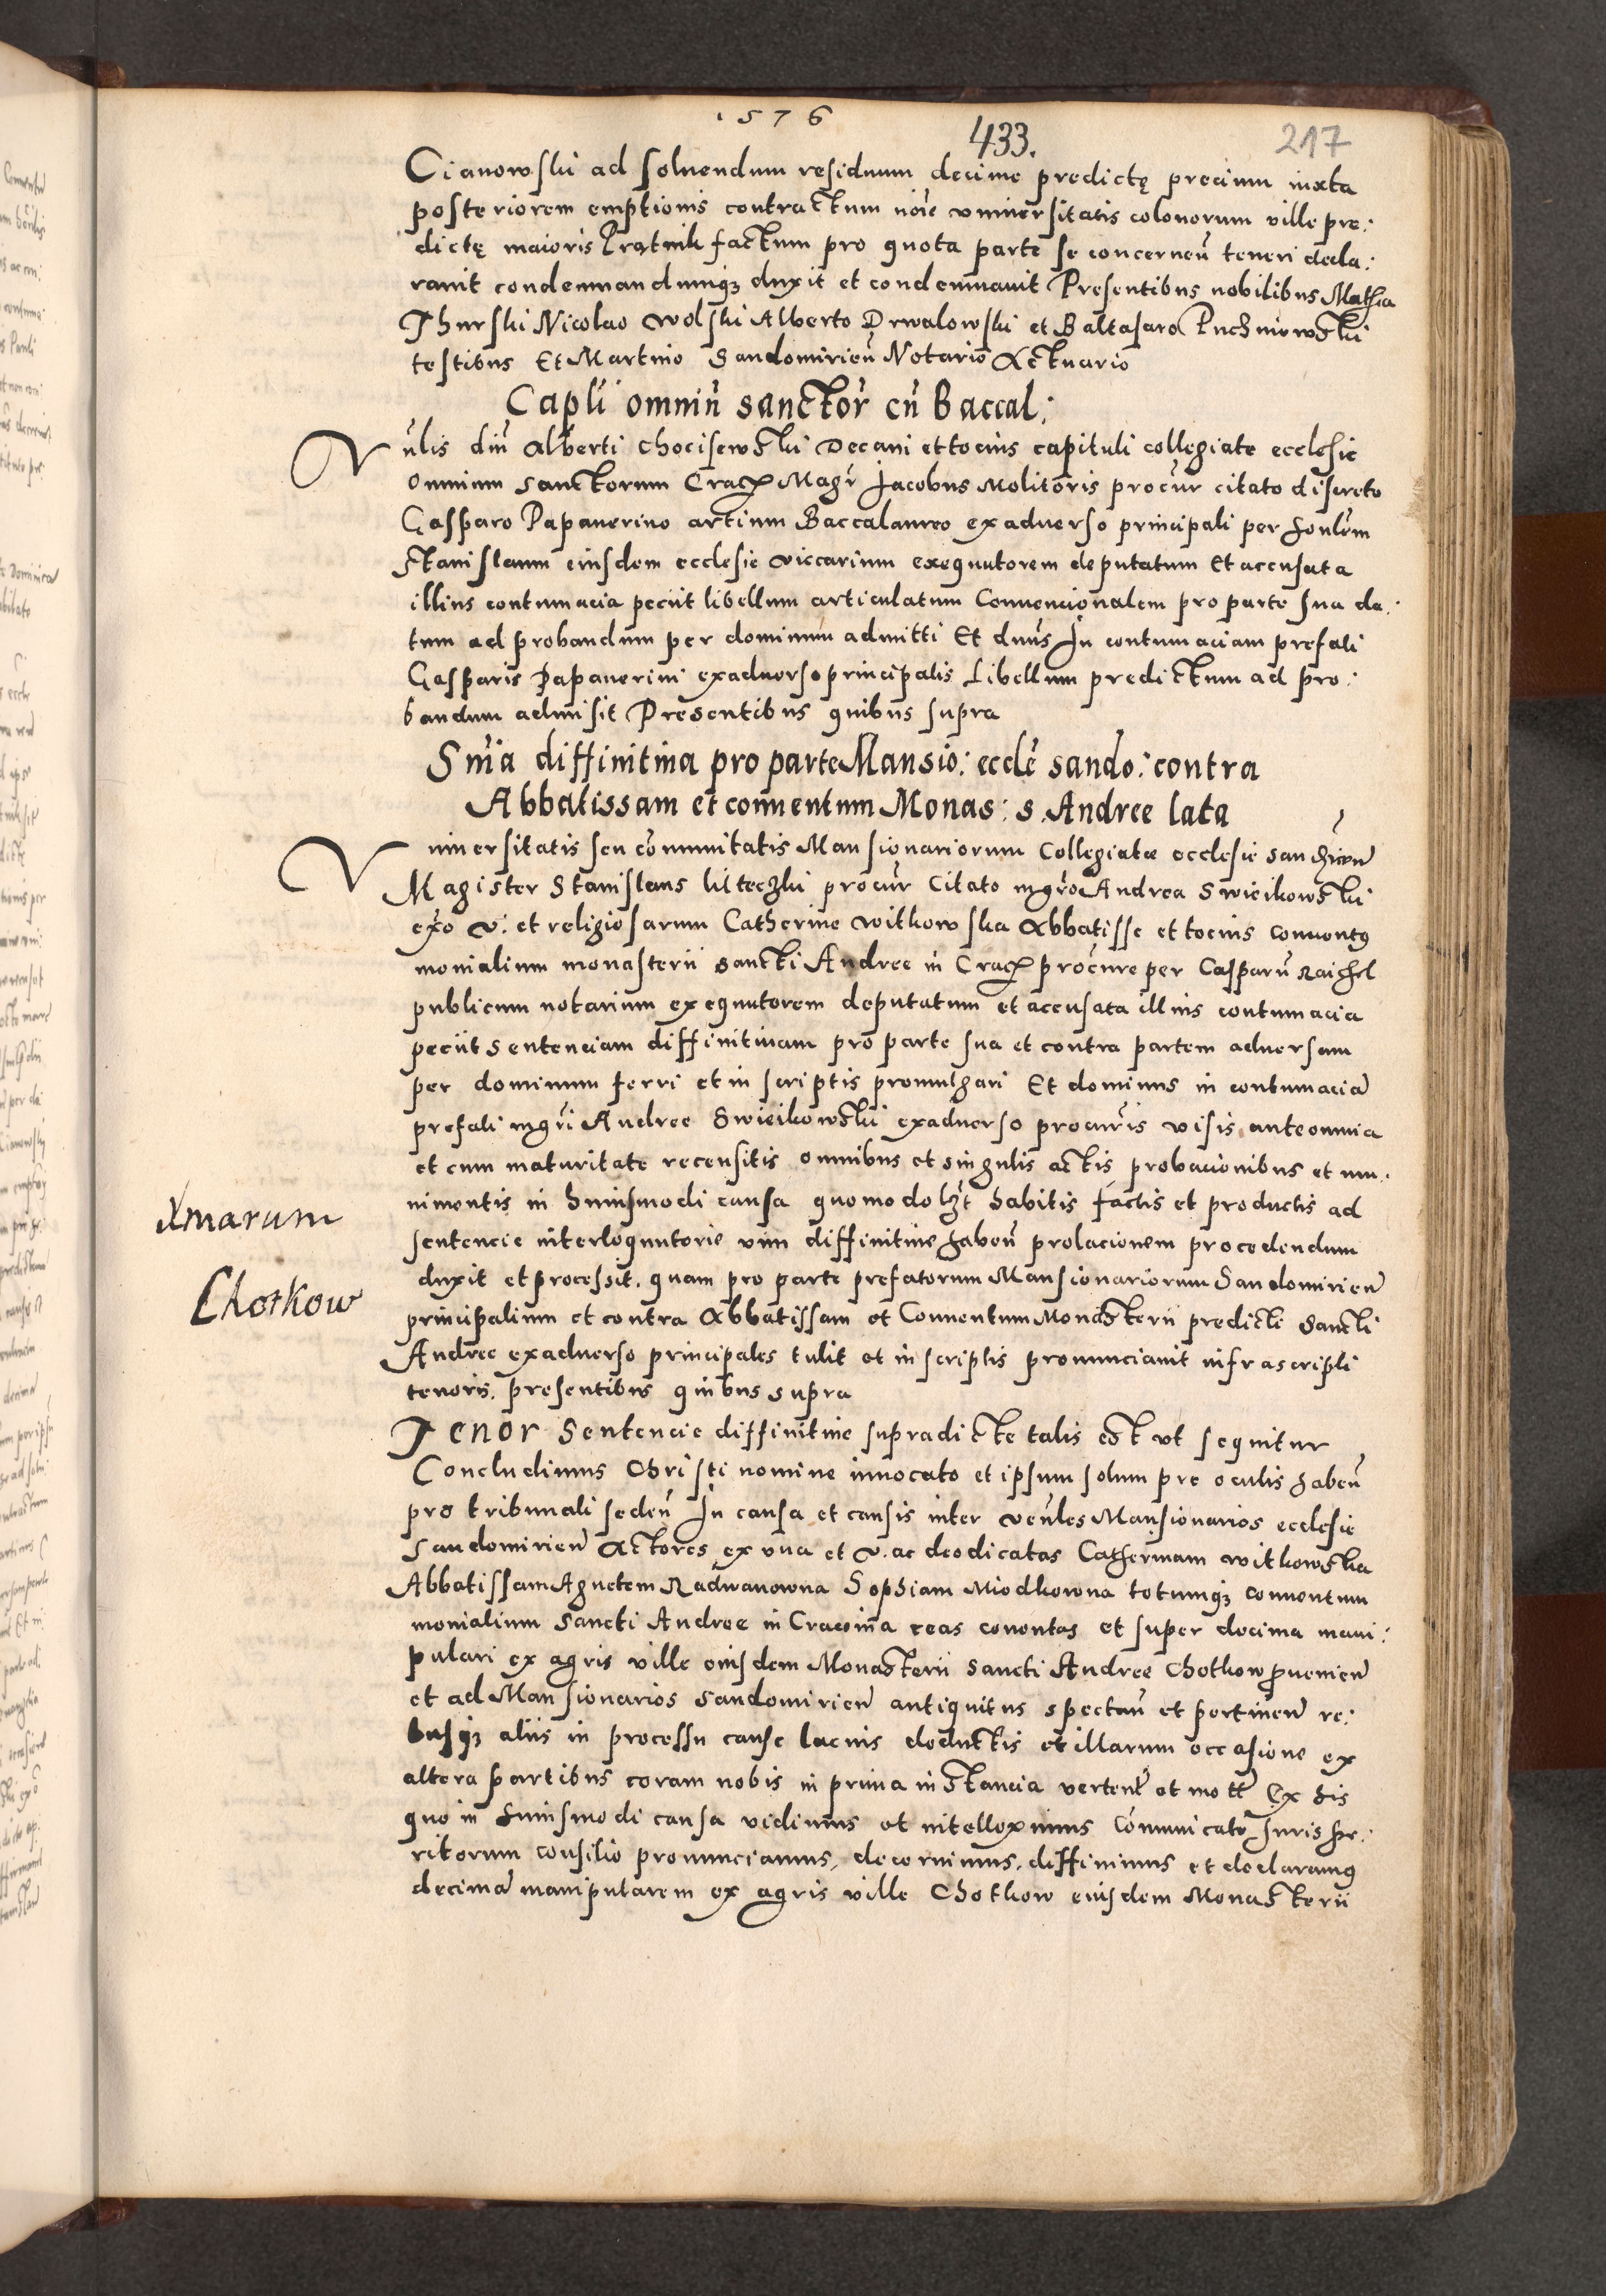 1576
433.
217
Cianowski ad soluendum residuum decime predictę precium iuxta
posteriorem emptionis contractum noīe vniuersitatis colonorum ville pre:
dictę maioris Prątnik factum pro quota parte se concerneñ teneri decla:
rauit condemnandumq3 duxit et condemnauit Presentibus nobilibus Mathia
Thurski Nicolao Wolski Alberto Drwalowski et Baltasaro Puchniowski
testibus Et Martino Sandomirieñ Notario Actuario
Capli omniū sanctor̄ cū Baccal:
Vn̄lis dn̄i Alberti Chocisewski Decani et tocius capituli collegiate ecclesie
Omnium sanctorum Crac Magr̄ Jacobus Molitoris procur̄ citato discreto
Gasparo Papauerino artium Baccalaureo exaduerso principali per honlem
Stanislaum eiusdem ecclesie viccarium exequutorem deputatum Et accusata
illius contumacia peciit libellum articulatum Conuencionalem pro parte sua da:
tum ad probandum per dominum admitti Et dnūs In contumaciam prefati
Gasparis Papauerini exaduerso principalis Libellum predictum ad pro:
bandum admisit Presentibus quibus supra
Snīa diffinitiua pro parte Mansio: eccłe sando: contra
Abbatissam et conuentum Monas: s. Andree lata
Vniuersitatis seu cōmunitatis Mansionariorum Collegiatæ ecclesie
Magister Stanislaus procur̄ Citato mgr̄o Andrea Swieikowski
exo v. et religiosarum Catherine Witkowska Abbatisse et tocius conuentq
monialium monasterii sancti Andree in Crac procure per Casparū Raichel
publicum notarium exequutorem deputatum et accusata illius contumacia
peciit Sentenciam diffinitiuam pro parte sua et contra partem aduersam
per dominum ferri et in scriptis promulgari Et dominus in contumaciā
prefati mgr̄i Andree Swieikowski exaduerso procur̄is visis ante omnia
et cum maturitate recensitis omnibus et singulis actis probacionibus et mu:
nimentis in huiusmodi causa quomodolz̄t habitis factis et productis ad
sentencie interloquutorie vim diffinitiue habeñ prolacionem procedendum
duxit et processit. quam pro parte prefatorum Mansionariorum Sandomirieñ
principalium et contra Abbatissam et Conuentum Monasterii predicti Sancti
Andree exaduerso principales tulit et in scriptis pronunciauit infrascripti
tenoris. presentibus quibus supra
Xmarum
Chotkow
Tenor Sentencie diffinitiue supradicte talis est vt sequitur
Concludimus Christi nomine inuocato et ipsum solum pre oculis habeñ
pro tribunali sedeñ In causa et causis inter veñles Mansionarios ecclesie
Sandomirieñ Actores ex vna et v. ac deodicatas Catherinam Witkowska
Abbatissam Agnetem Radwanowna Sophiam Miodkowna totumq3 conuentum
monialium Sancti Andree in Cracouia reas conuentas et super decima mani:
pulari ex agris ville eiusdem Monasterii Sancti Andree Chotkow prouenieñ
et ad Mansionarios Sandomirieñ antiquitus spectañ et pertineñ re:
busq3 aliis in processu cause lacius deductis et illarum occasione ex
altera partibus coram nobis in prima instancia verteñ et mott Ex his
quo in huiusmodi causa vidimus et intelleximus Cōmunicato Juris pe:
ritorum consilio pronunciamus, decernimus, diffinimus et declaramq
decimā manipularem ex agris ville Chotkow eiusdem Monasterii